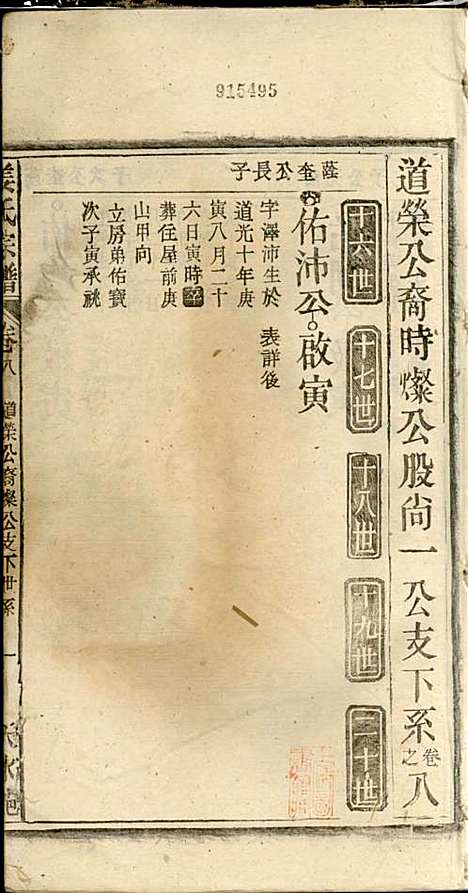 915495
道榮公裔時燦公股尚一公支下系卷之八
十六世
十七世
十八世
十九世
二十世
蔭奎公長子
佑沛公
啟寅
字澤沛生於
道光十年庚
寅八月二十
六日寅時卒
葬住屋前庚
山甲向
立房弟佑寶
次子寅承祧
表詳後
姜氏宗譜
卷八
道榮公裔燦公支下世系
一
天水